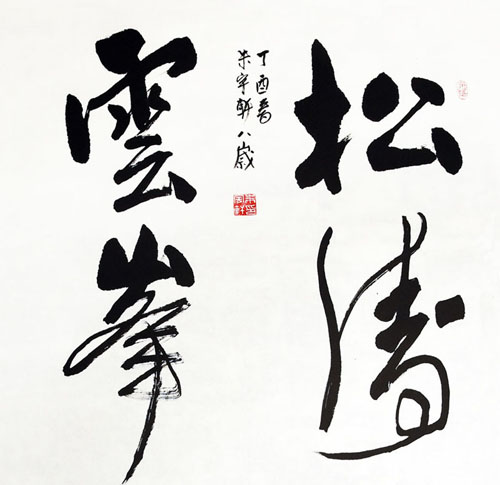 松濤
雲峯
丁酉春
朱宇軒八歲